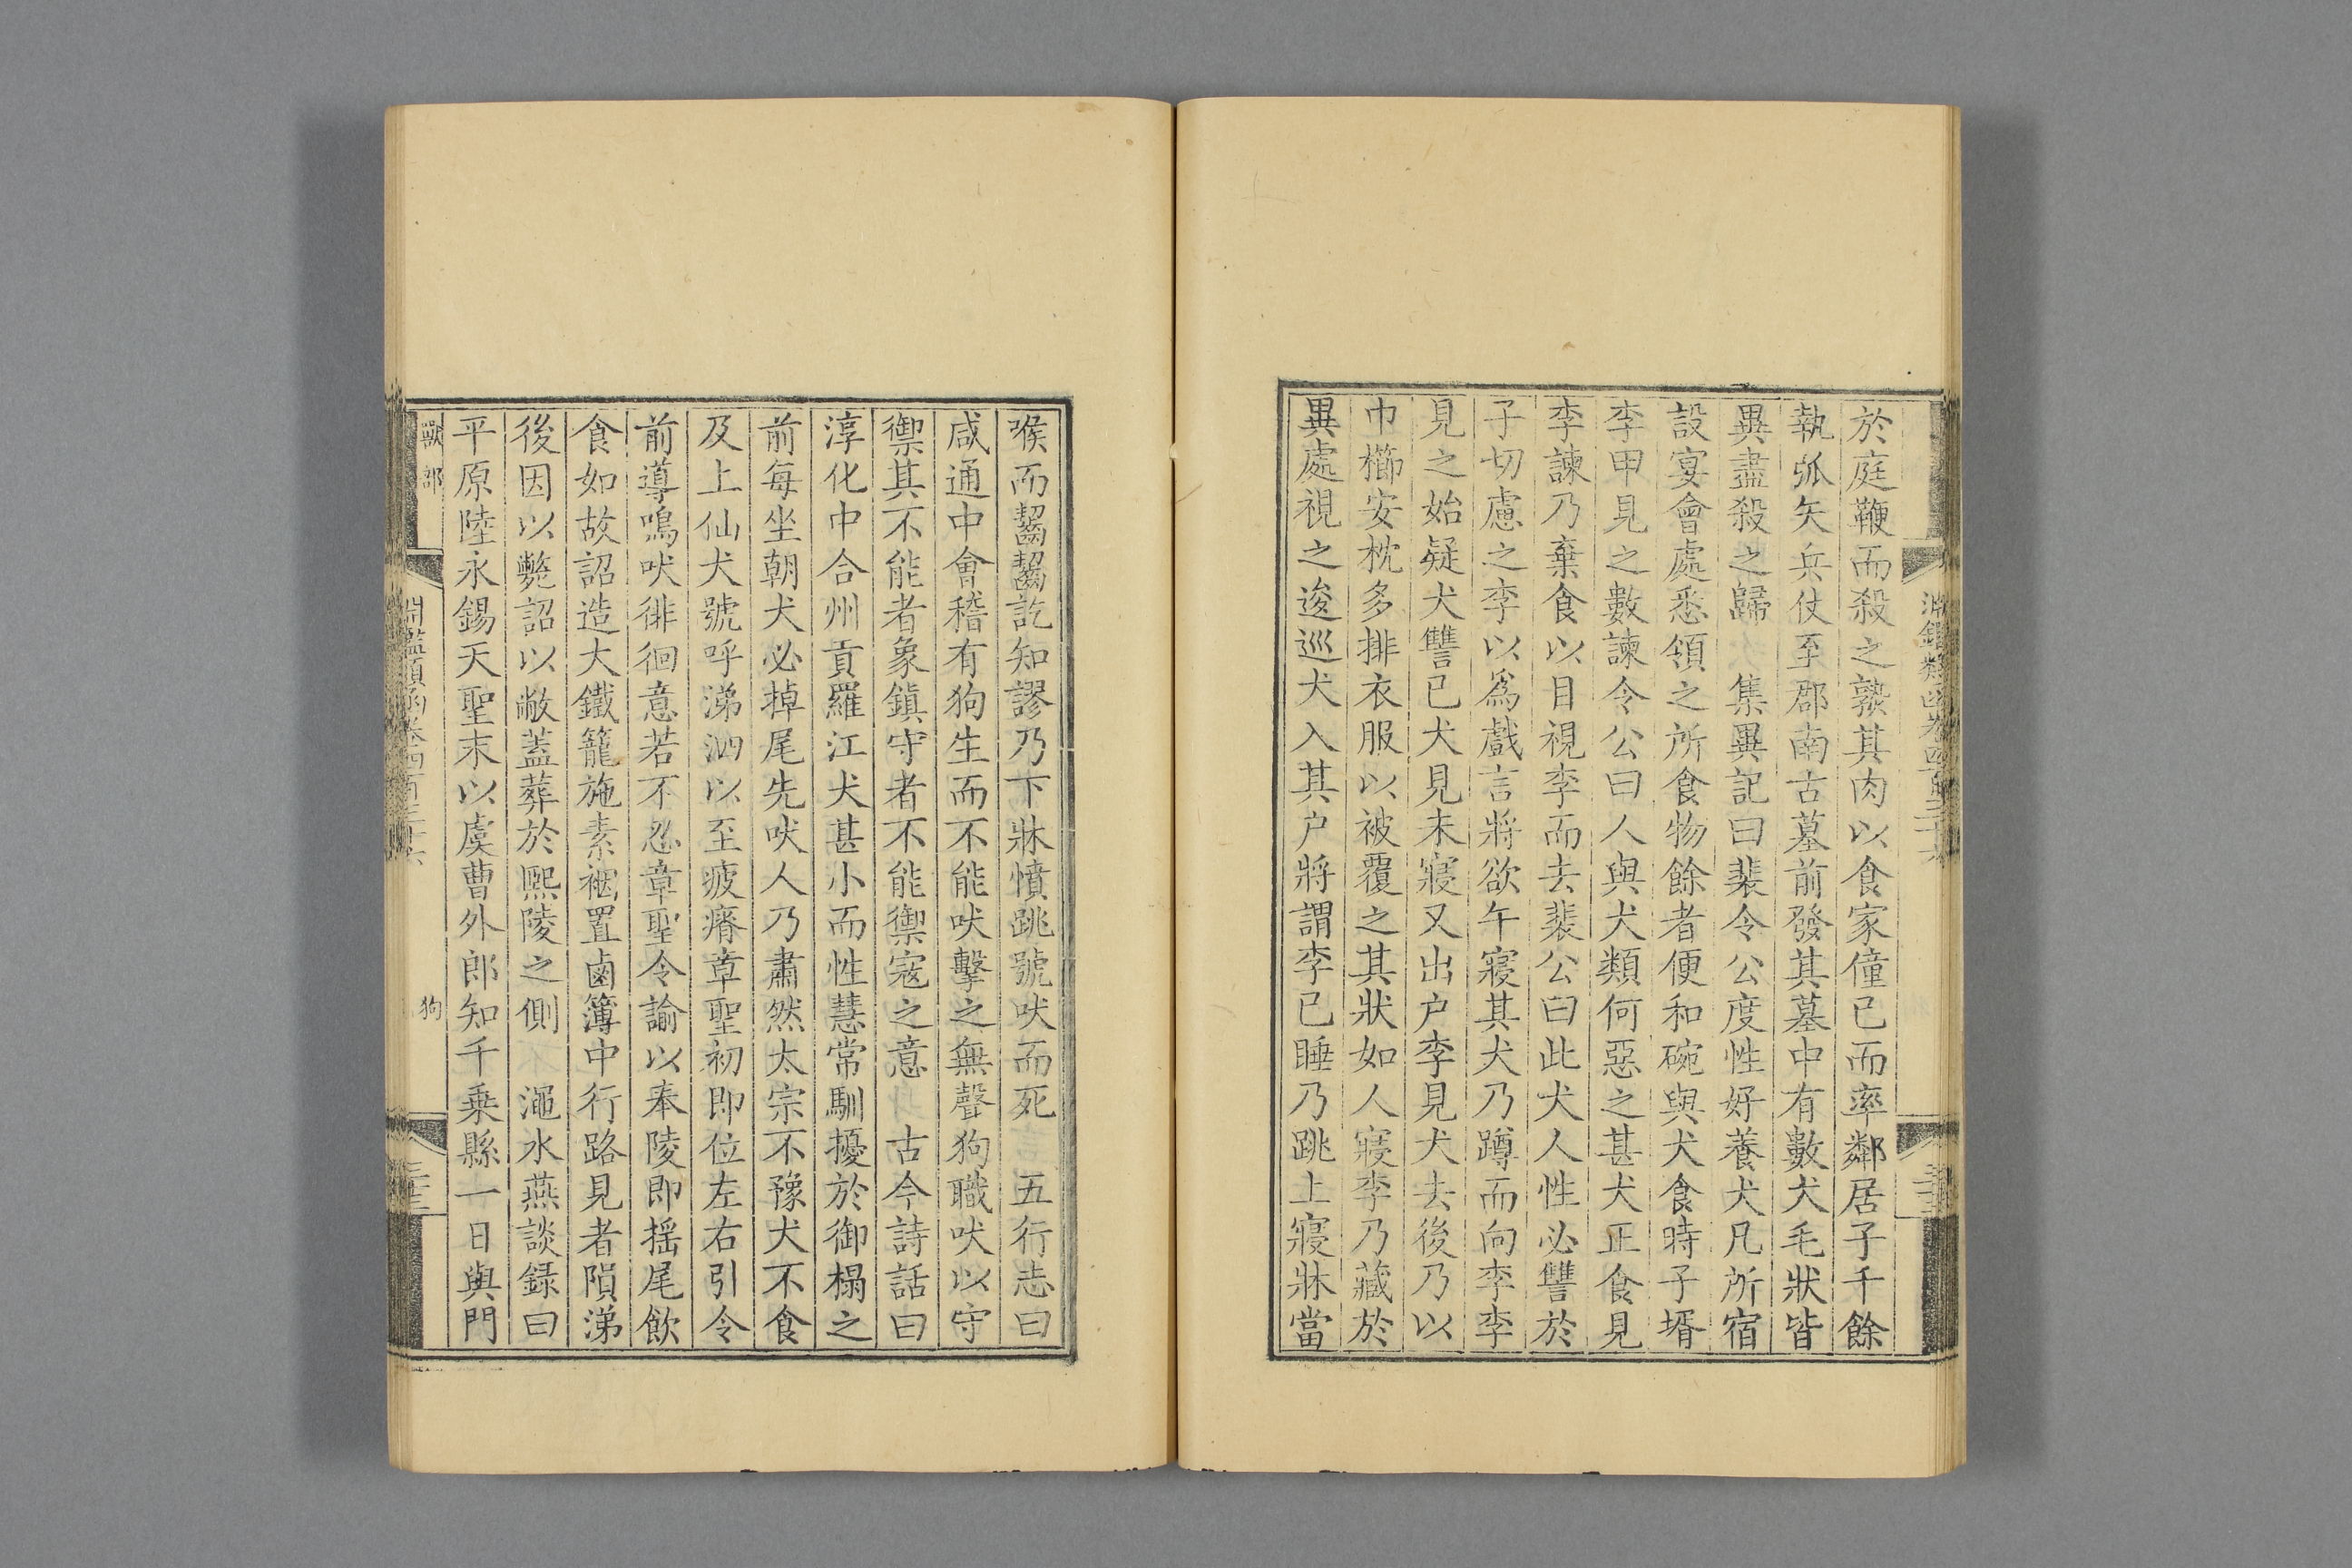 於庭鞭而殺之熟其肉以食家僮已而率鄰居子千餘
執弧矢兵仗至郡南古墓前發其墓中有數犬毛狀皆
異盡殺之歸 集異記曰裴令公度性好養犬凡所宿
設宴會處悉領之所食物餘者便和碗與犬食時子壻
李甲見之數諫令公曰人與犬類何惡之甚犬正食見
李諫乃棄食以目視李而去裴公曰此犬人性必讐於
子切慮之李以爲戲言將欲午寢其犬乃蹲而向李李
見之始疑犬讐已犬見未寢又出户李見犬去後乃以
巾櫛安枕多排衣服以被覆之其狀如人寢李乃藏於
異處視之逡巡犬入其户將謂李已睡乃跳上寢牀當
喉而齧齧訖知謬乃下牀憤跳號吠而死 五行志曰
咸通中會稽有狗生而不能吠擊之無聲狗職吠以守
禦其不能者象鎮守者不能禦寇之意 古今詩話曰
淳化中合州貢羅江犬甚小而性慧常馴擾於御榻之
前每坐朝犬必掉尾先吠人乃肅然太宗不豫犬不食
及上仙犬號呼涕泗以至疲瘠章聖初即位左右引令
前導鳴吠徘徊意若不忍章聖令諭以奉陵即摇尾飲
食如故詔造大鐵籠施素裀置鹵簿中行路見者隕涕
後因以斃詔以敝蓋葬於熙陵之側 澠水燕談録曰
平原陸永錫天聖末以虞曹外郎知千乗縣一日與門
獸部
淵鑑類函卷四百三十六
狗